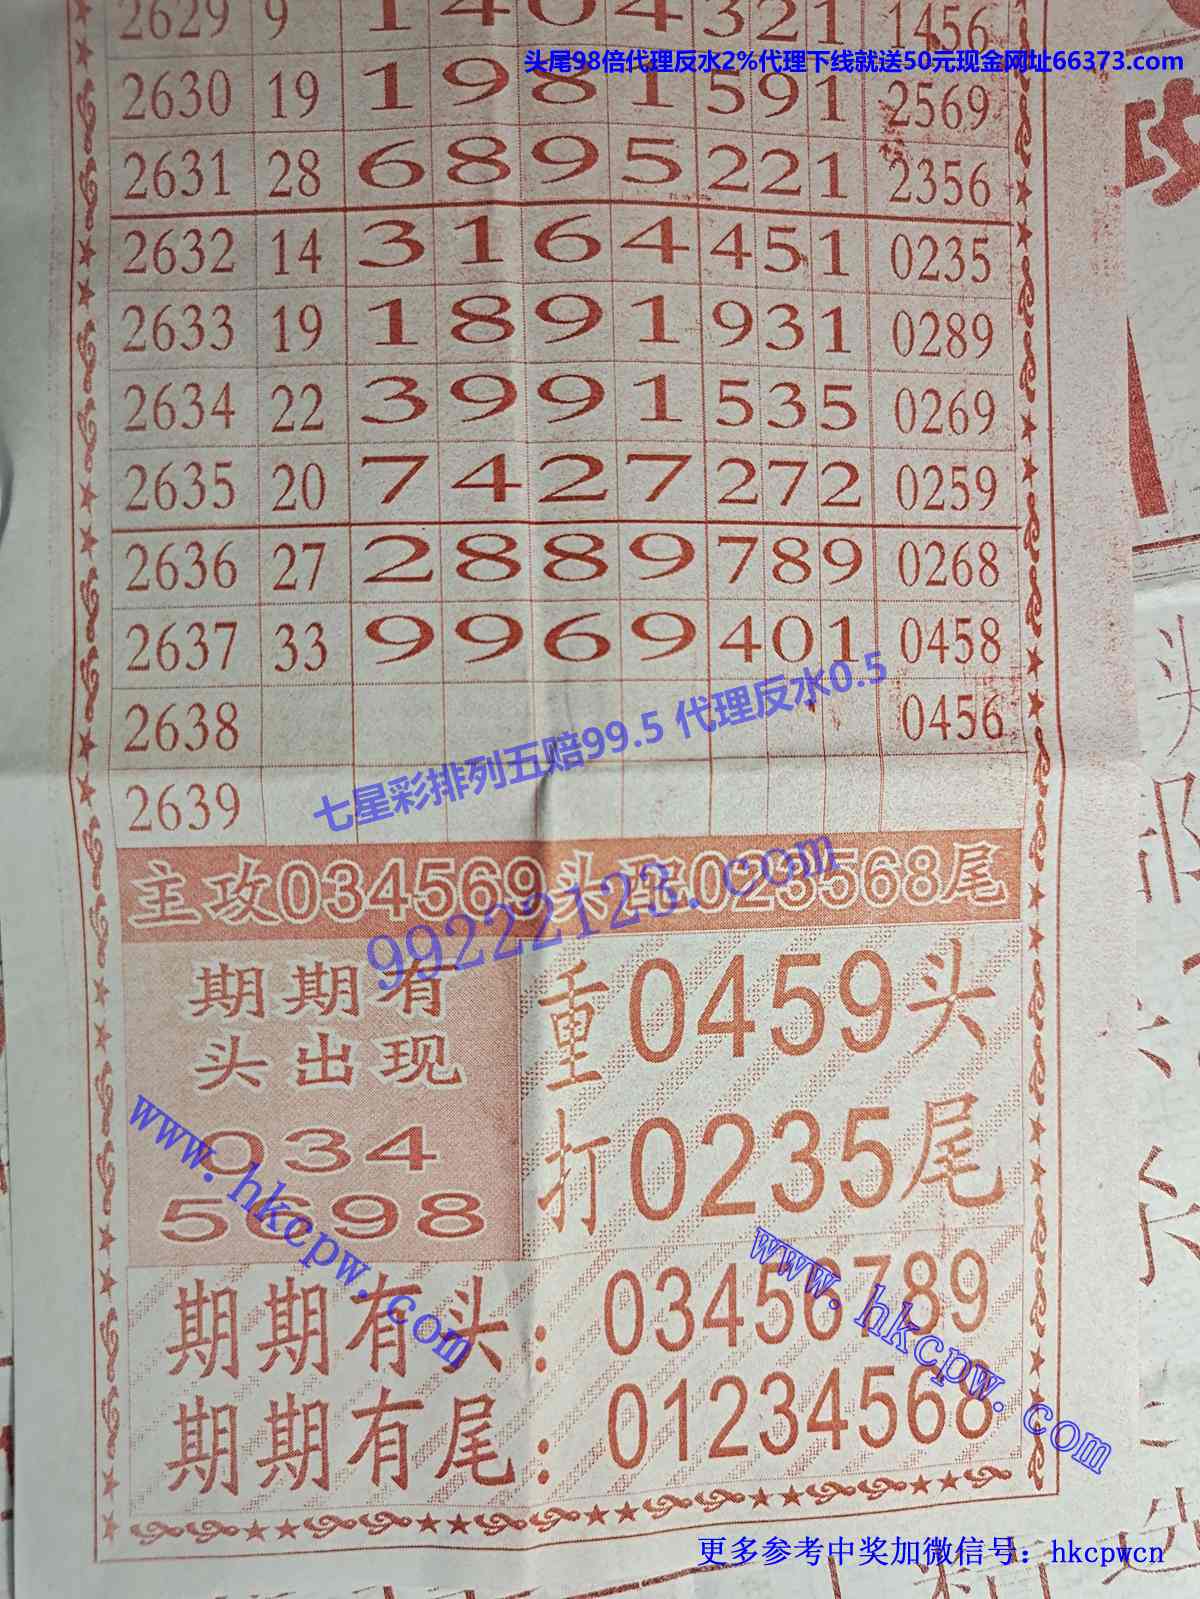 2629 9 1 4 0 4 3 2 1 1456
头尾98倍代理反水2%代理下线就送50元现金网址66373.com
2630 19 1 9 8 1 5 9 1 2569
2631 28 6 8 9 5 2 2 1 2356
2632 14 3 1 6 4 4 5 1 0235
2633 19 1 8 9 1 9 3 1 0289
2634 22 3 9 9 1 5 3 5 0269
2635 20 7 4 2 7 2 7 2 0259
2636 27 2 8 8 9 7 8 9 0268
2637 33 9 9 6 9 4 0 1 0458
2638 0456
七星彩排列五赔99.5 代理反水0.5
2639
主攻034569头配023568尾
99222123.com
期期有
头出现
034
5698
重0459头
打0235尾
www.hkcpw.com
www.hkcpw.com
期期有头：03456789
期期有尾：01234568
更多参考中奖加微信号：hkcpwcn